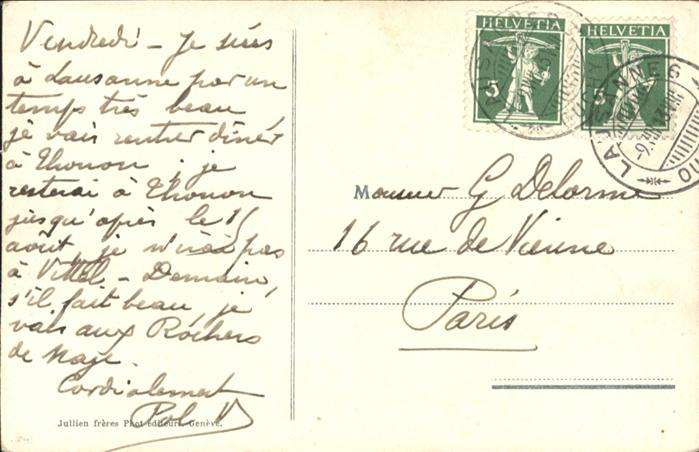 Vendredi – Je suis
à Lausanne par un
temps très beau,
je vais rentrer dîner
à Thonon ; je
resterai à Thonon
jusqu'après le 15
août, je n'irai pas
à Vittel – Demain,
s'il fait beau, je
vais aux Rochers
de Naye.
Cordialement
Pol
Jullien frères Phot-éditeurs, Genève.
HELVETIA
5
HELVETIA
5
LAUSANNE
Monsieur G Delorme
16 rue de Vienne
Paris